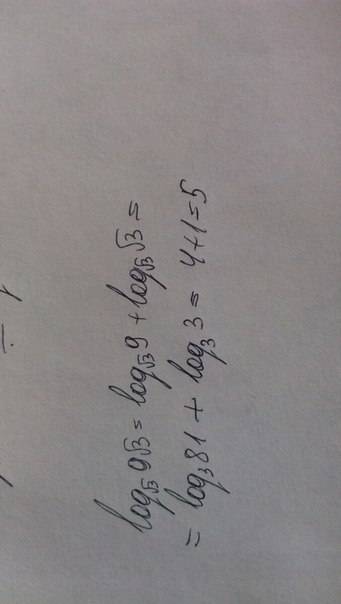 log√3 9√3 = log√3 9 + log√3 √3 =
= log₃ 81 + log₃ 3 = 4+1=5